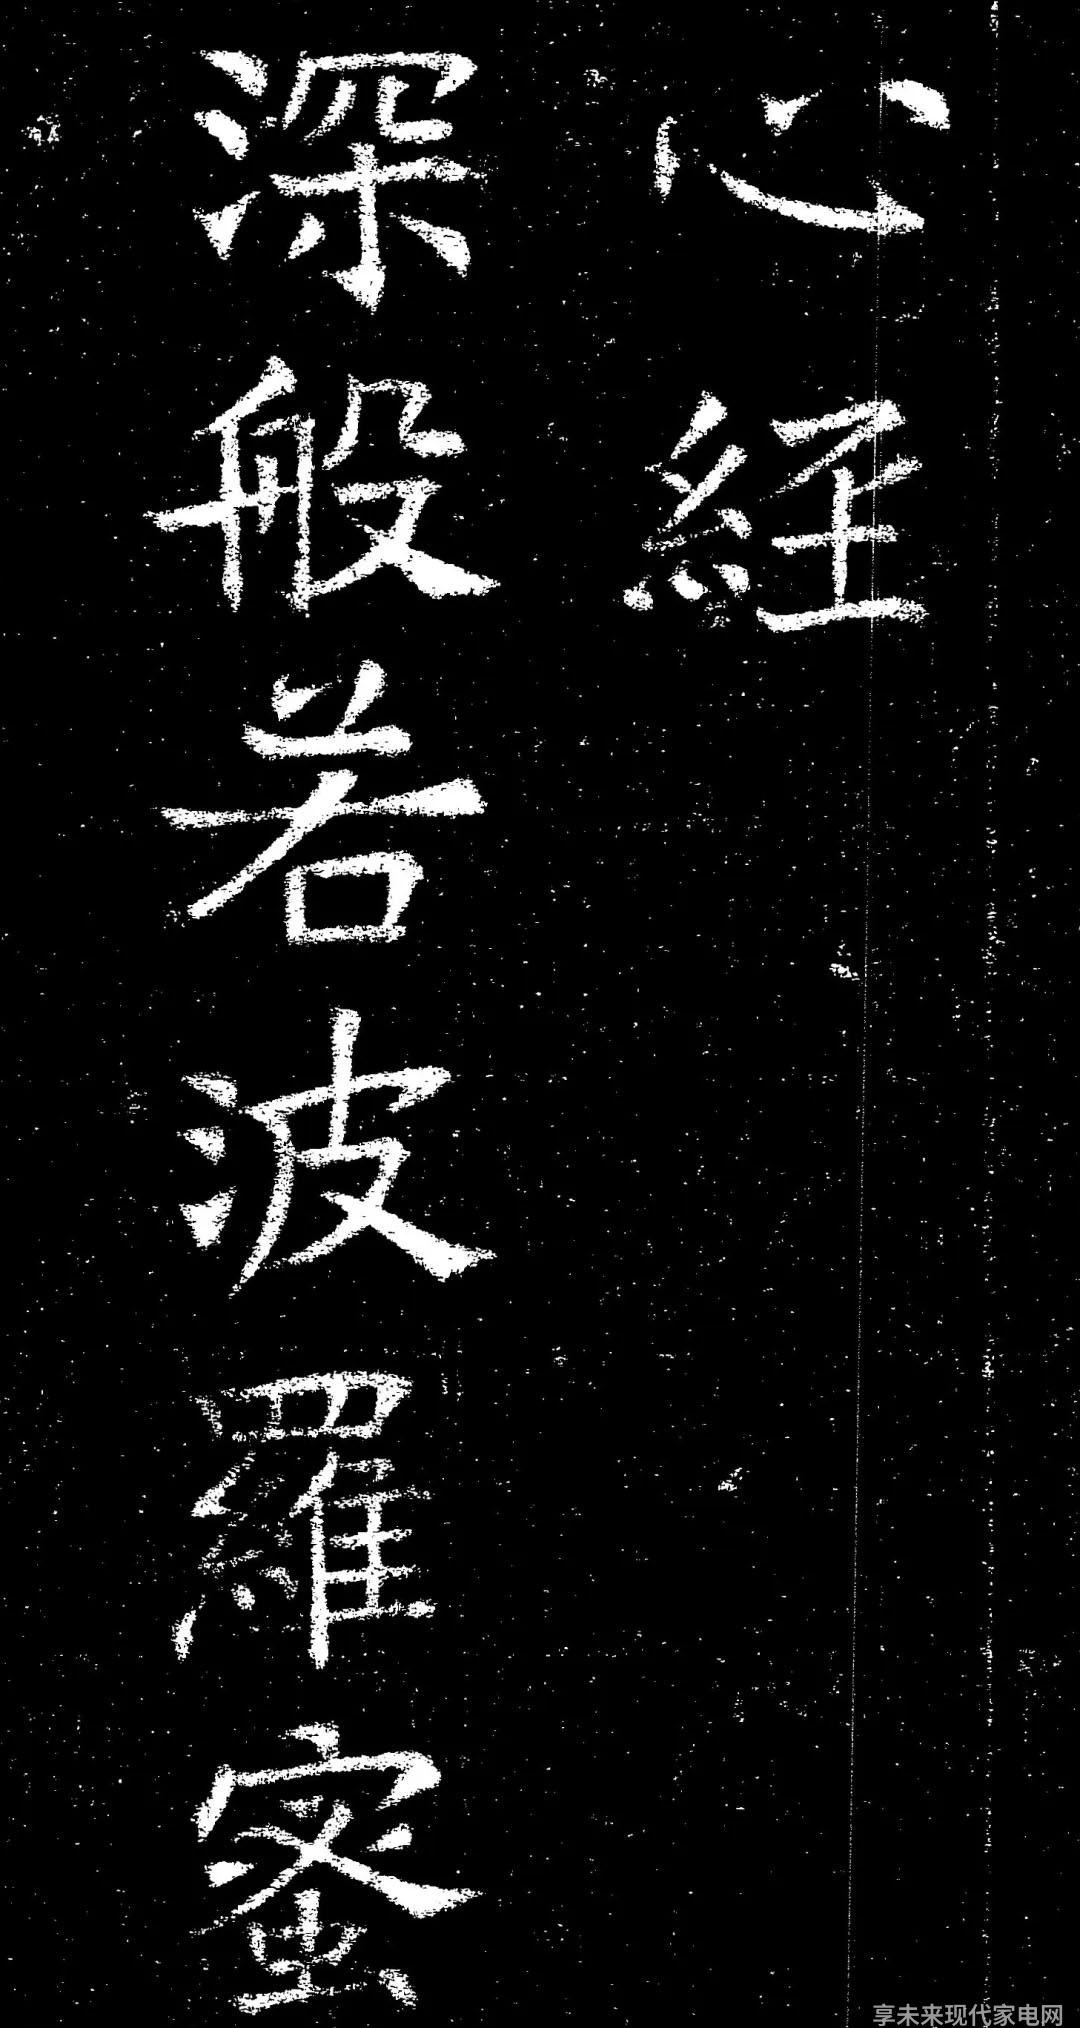 心經
深般若波羅蜜
享未来现代家电网